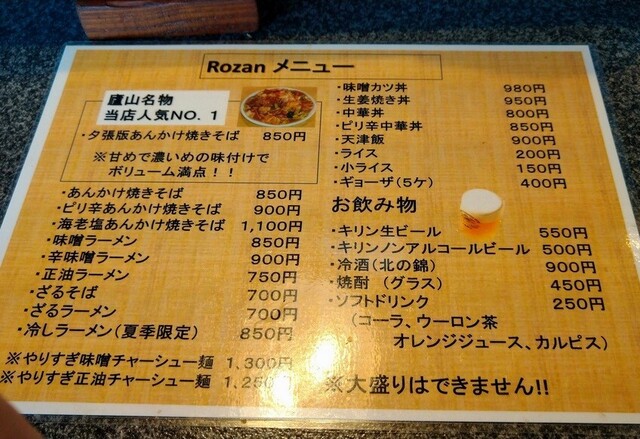 Rozan メニュー
廬山名物
当店人気NO. 1
・夕張版あんかけ焼きそば 850円
※甘めで濃いめの味付けで
ボリューム満点！！
・あんかけ焼きそば 850円
・ピリ辛あんかけ焼きそば 900円
・海老塩あんかけ焼きそば 1,100円
・味噌ラーメン 850円
・辛味噌ラーメン 900円
・正油ラーメン 750円
・ざるそば 700円
・ざるラーメン 700円
・冷しラーメン（夏季限定） 850円
※やりすぎ味噌チャーシュー麺 1,300円
※やりすぎ正油チャーシュー麺 1,250円
・味噌カツ丼 980円
・生姜焼き丼 950円
・中華丼 800円
・ピリ辛中華丼 850円
・天津飯 900円
・ライス 200円
・小ライス 150円
・ギョーザ（5ケ） 400円
お飲み物
・キリン生ビール 550円
・キリンノンアルコールビール 500円
・冷酒（北の錦） 900円
・焼酎 （グラス） 450円
・ソフトドリンク 250円
（コーラ、ウーロン茶
オレンジジュース、カルピス）
※大盛りはできません!!